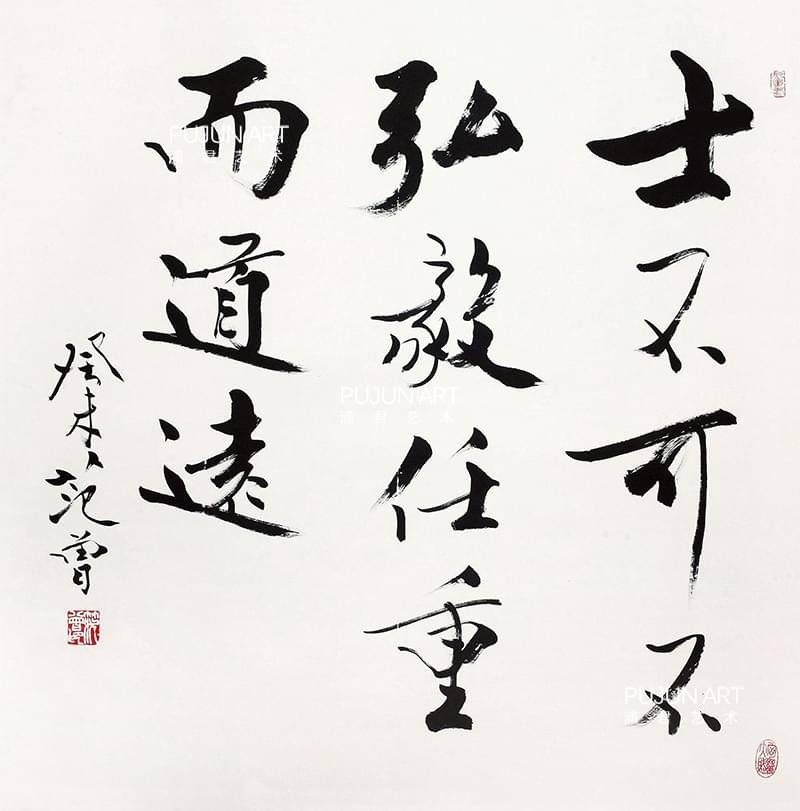 士不可不
弘毅任重
而道遠
癸未范曾
PUJUN ART
浦君艺术
PUJUN ART
浦君艺术
PUJUN ART
浦君艺术
范曾